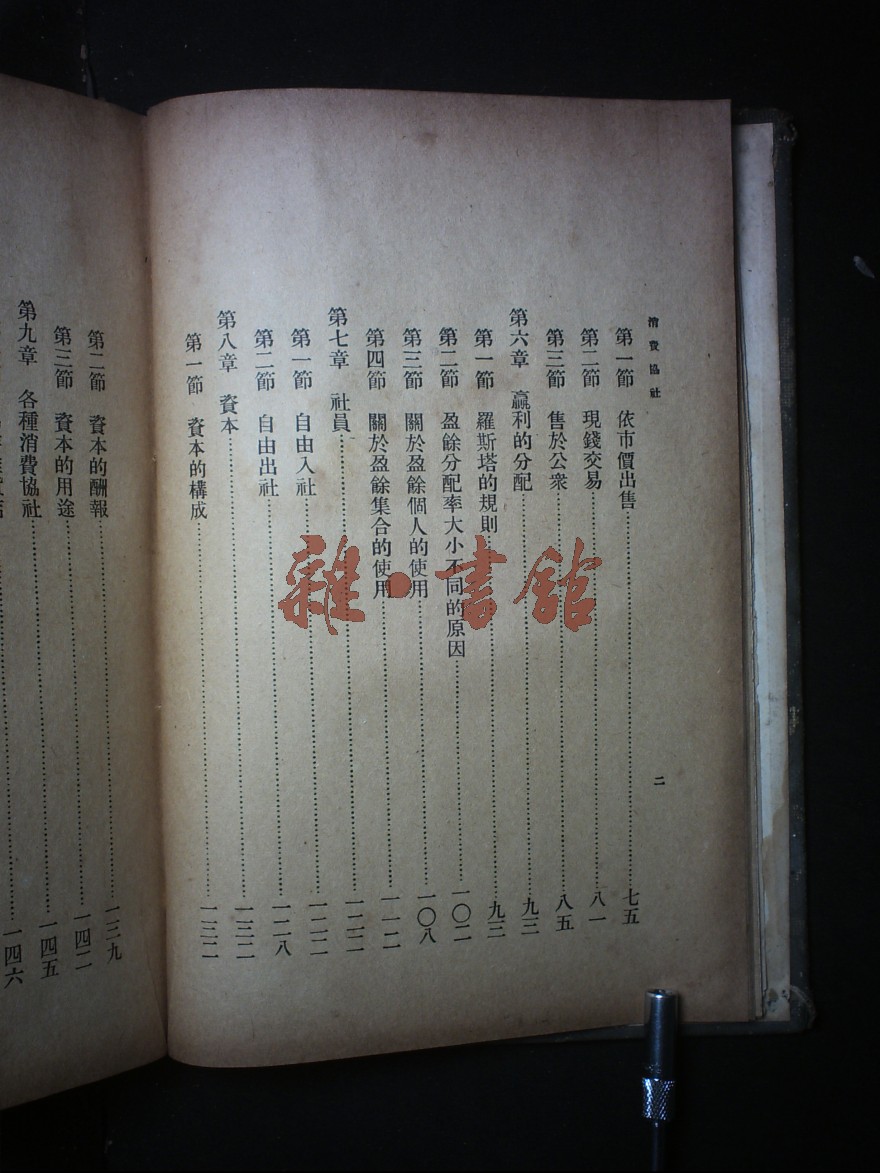 消費協社
二
第一節 依市價出售 七五
第二節 現錢交易 八一
第三節 售於公衆 八五
第六章 贏利的分配 九三
第一節 羅斯塔的規則 九三
第二節 盈餘分配率大小不同的原因 一〇二
第三節 關於盈餘個人的使用 一〇八
第四節 關於盈餘集合的使用 一一二
第七章 社員 一二二
第一節 自由入社 一二二
第二節 自由出社 一二八
第八章 資本 一三二
第一節 資本的構成 一三二
第二節 資本的酬報 一三九
第三節 資本的用途 一四二
第九章 各種消費協社 一四五
一四六
雜·書館